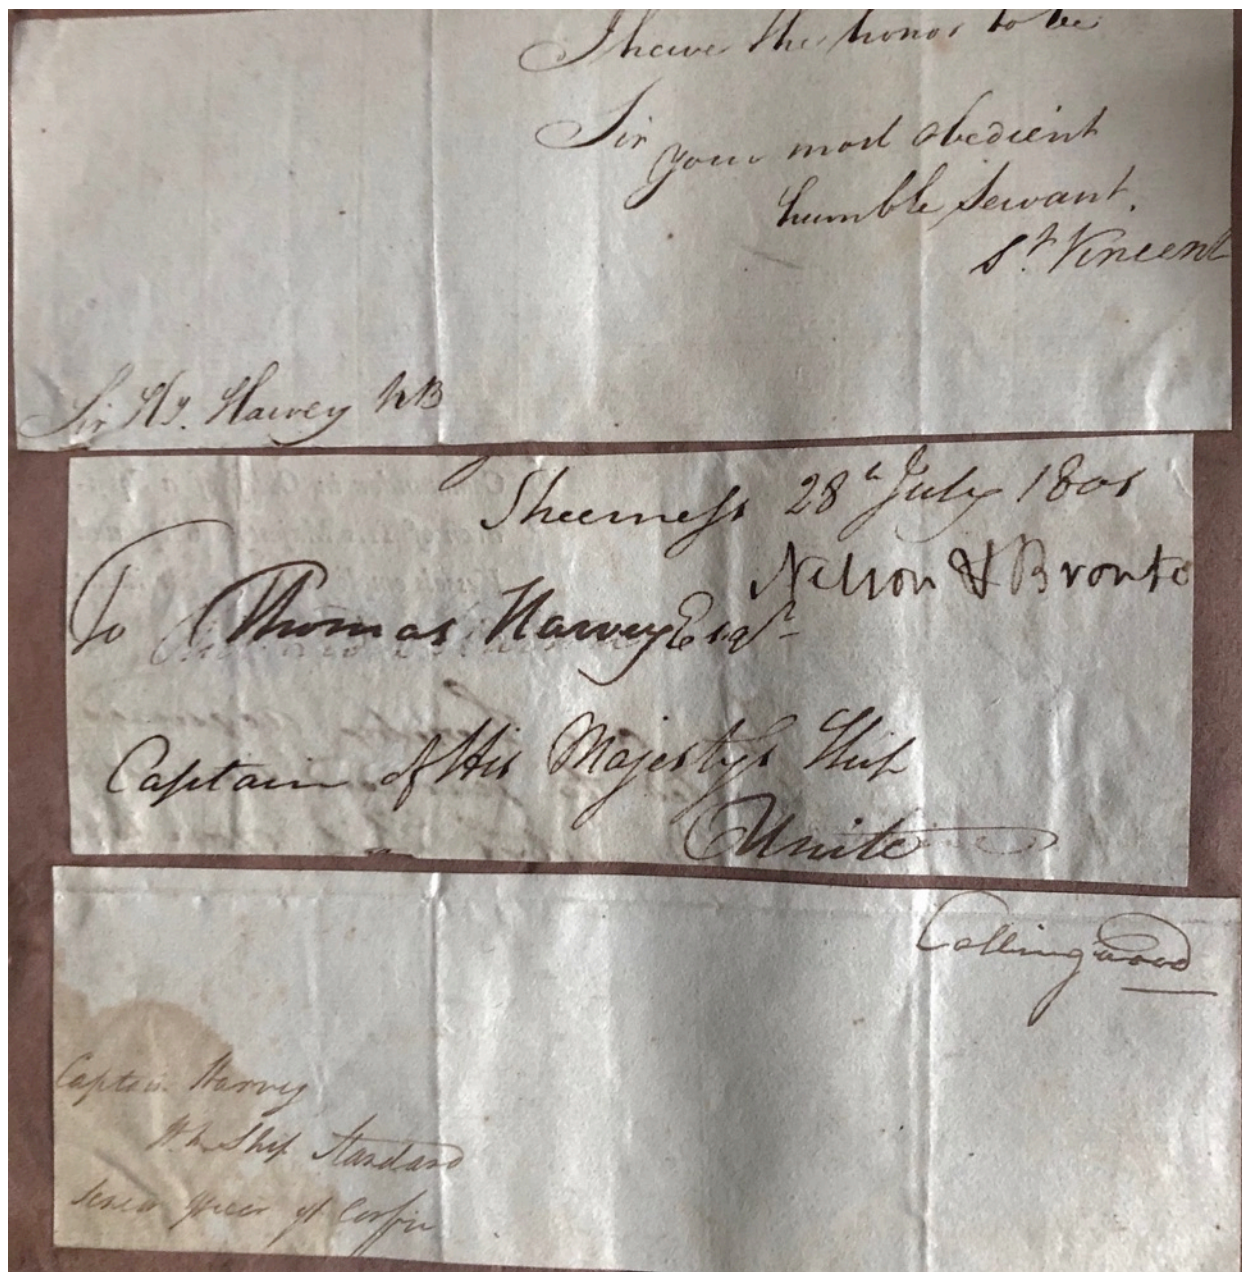 I have the honor to be
Sir
your most obedient
humble Servant.
St. Vincent
Sir Hy. Harvey KB
Sheerness 28th July 1801
Nelson & Bronte
To Thomas Harvey Esqr
Captain of His Majestys Ship
Unite
Collingwood
Captain Harvey
H. M. Ship Standard
Senior Officer at Corfu